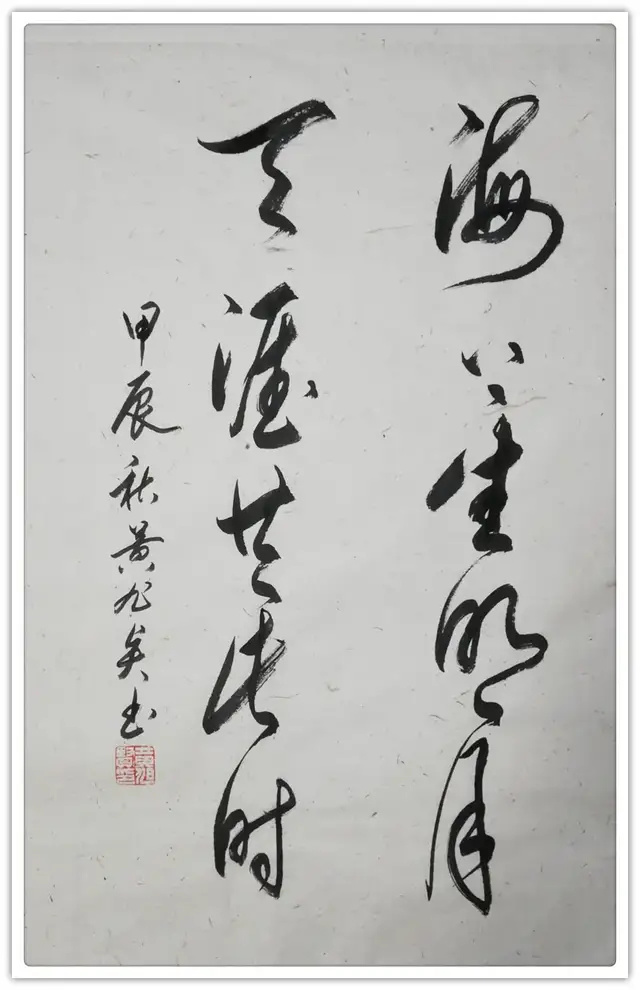 海上生明月
天涯共此时
甲辰秋黄旭炎书